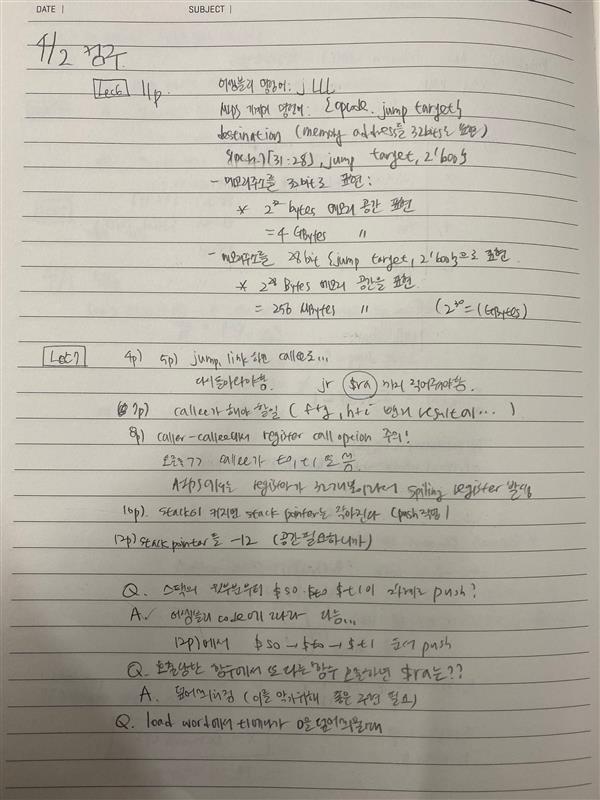 DATE |
SUBJECT |
4/2 정규
Lec6 11p
어셈블리 명령어: j LLL
MIPS 기계어 명령어: {opcode, jump target}
destination (memory address를 32bits로 표현)
[31:28], jump target, 2'b00}
- 메모리주소를 32bit로 표현:
* 2^32 bytes 메모리 공간 표현
= 4 GBytes "
- 메모리주소를 28bit {jump target, 2'b00}으로 표현
* 2^28 Bytes 메모리 공간을 표현
= 256 MBytes " (2^30 = 1GBytes)
Lec7 4p) 5p) jump, link 하면 callee로...
다시돌아와야함. jr $ra 까지 적어줘야함.
7p) callee가 해야 할일 (f+g, h+i 빼서 result에...)
8p) caller-callee에서 register call option 주의!
callee가 t0, t1 또 씀.
MIPS에서는 register가 32개뿐이라서 spiling register 발생
10p). stack이 커지면 stack pointer는 작아진다 (push작업)
12p) stack pointer를 -12 (공간필요하니까)
Q. 스택의 윗부분부터 $s0 $t0 $t1이 차례로 push?
A. 어셈블리 code에 따라 다름...
12p)에서 $s0 → $t0 → $t1 순서 push
Q. 호출당한 함수에서 또 다른 함수 호출하면 $ra는??
A. 덮어씌워짐 (이를 막기위해 좋은 구현 필요)
Q. load word에서 0을 덮어씌울때